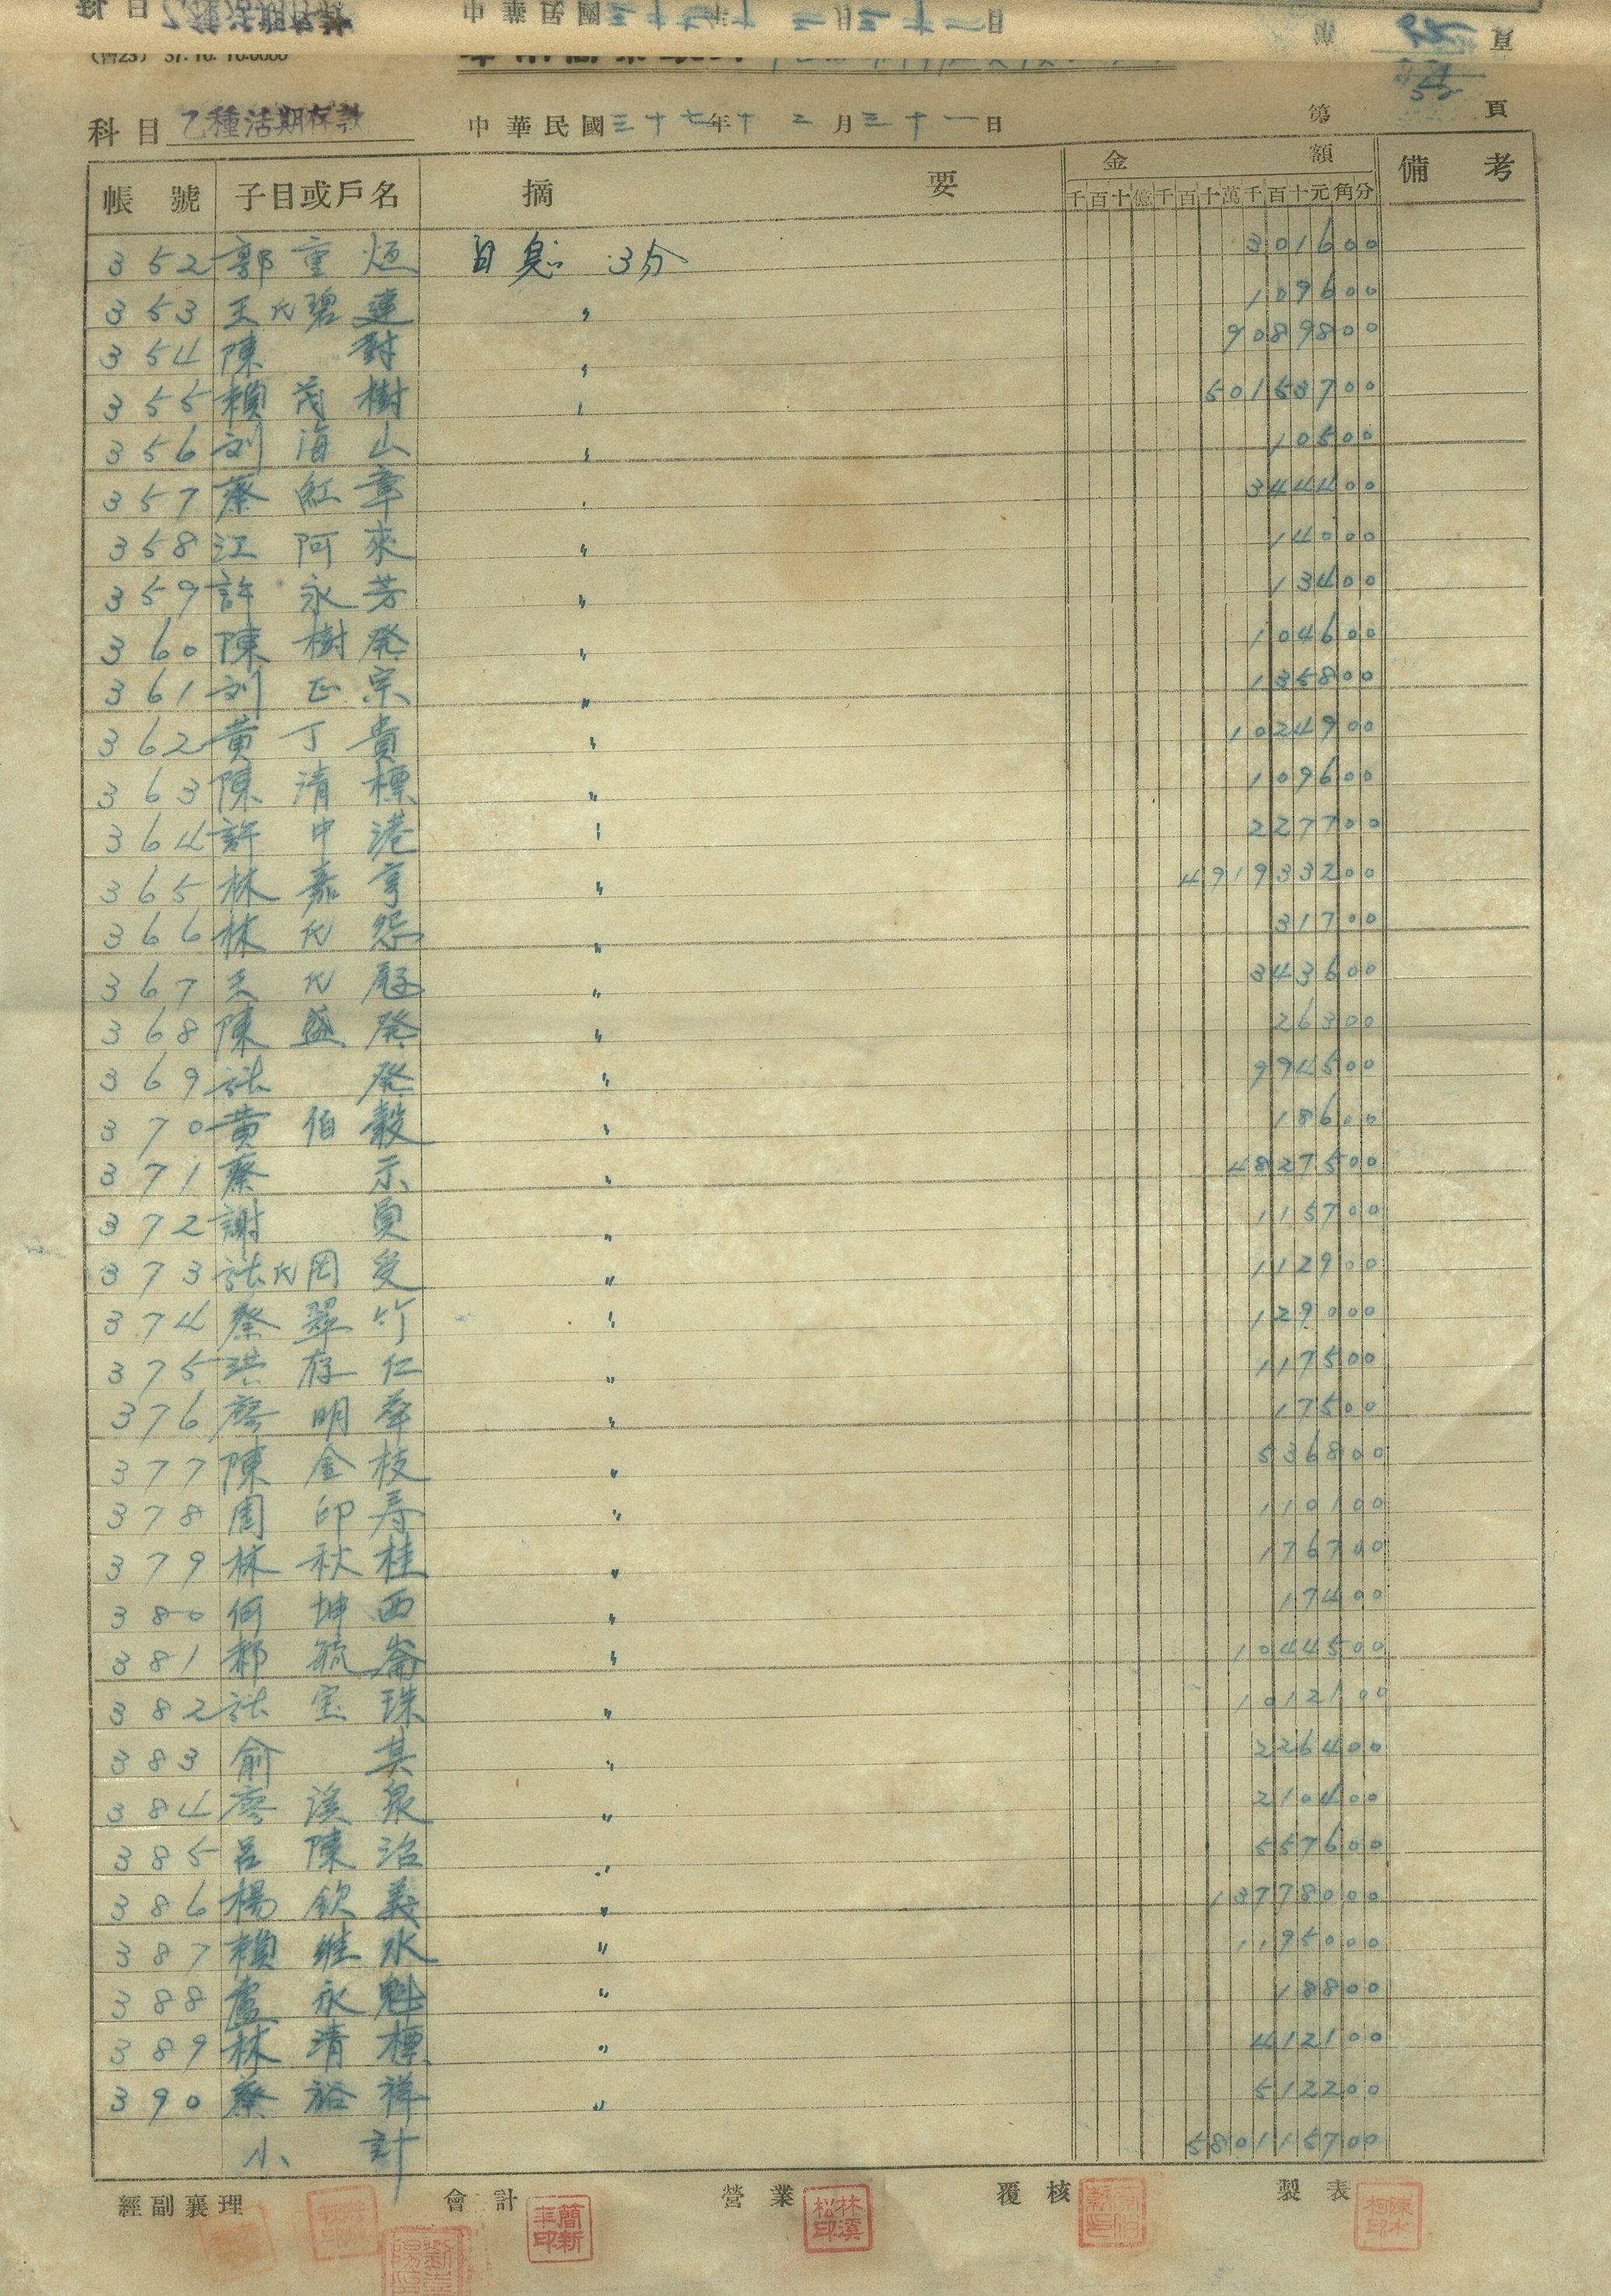 科目 乙種活期存款 中華民國三十七年十二月三十一日 第 頁
帳號 子目或戶名 摘要 金額 備考
千百十億千百十萬千百十元角分
352 郭重烜 日息 3分 301600
353 王氏碧連 〃 109600
354 陳 對 〃 9089800
355 賴茂樹 〃 50153700
356 刘海山 〃 10500
357 蔡紅章 〃 344400
358 江阿來 〃 14000
359 許永芳 〃 13400
360 陳樹發 〃 104600
361 刘正宗 〃 135800
362 黃丁貴 〃 1024900
363 陳清標 〃 109600
364 許中港 〃 227700
365 林嘉亨 〃 491933200
366 林氏怨 〃 31700
367 王氏 〃 343600
368 陳盛發 〃 26300
369 張 發 〃 994500
370 黃伯毅 〃 18600
371 蔡 示 〃 4827500
372 謝 員 〃 115700
373 張氏罔受 〃 112900
374 蔡翠竹 〃 129000
375 洪存仁 〃 117500
376 廖明 〃 17500
377 陳金枝 〃 536800
378 周印寿 〃 110100
379 林秋桂 〃 176700
380 何坤西 〃 17400
381 鄭毓崙 〃 1044500
382 張宝珠 〃 1012100
383 俞 其 〃 226400
384 廖溪泉 〃 210400
385 呂陳治 〃 557600
386 楊欽義 〃 13778000
387 賴維水 〃 1195000
388 盧永魁 〃 18800
389 林清標 〃 412100
390 蔡裕祥 〃 512200
小計 580115700
經副襄理 會計 營業 覆核 製表
簡新 林溪松印 陳水柯印